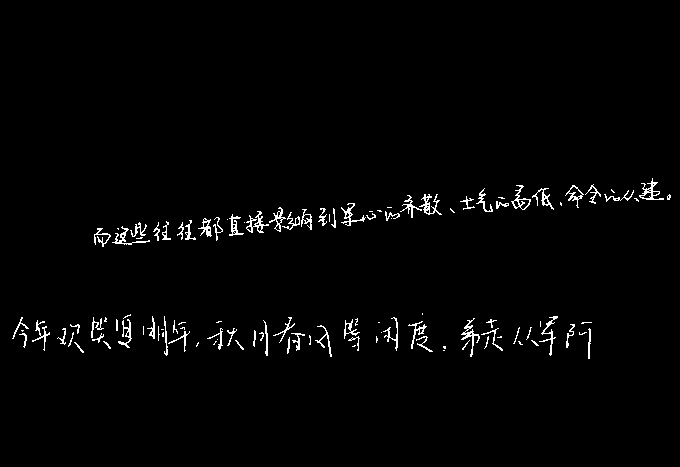 而这些往往都直接影响到军心的齐散、士气的高低、命令的从违。
今年欢笑复明年,秋月春风等闲度。弟走从军阿